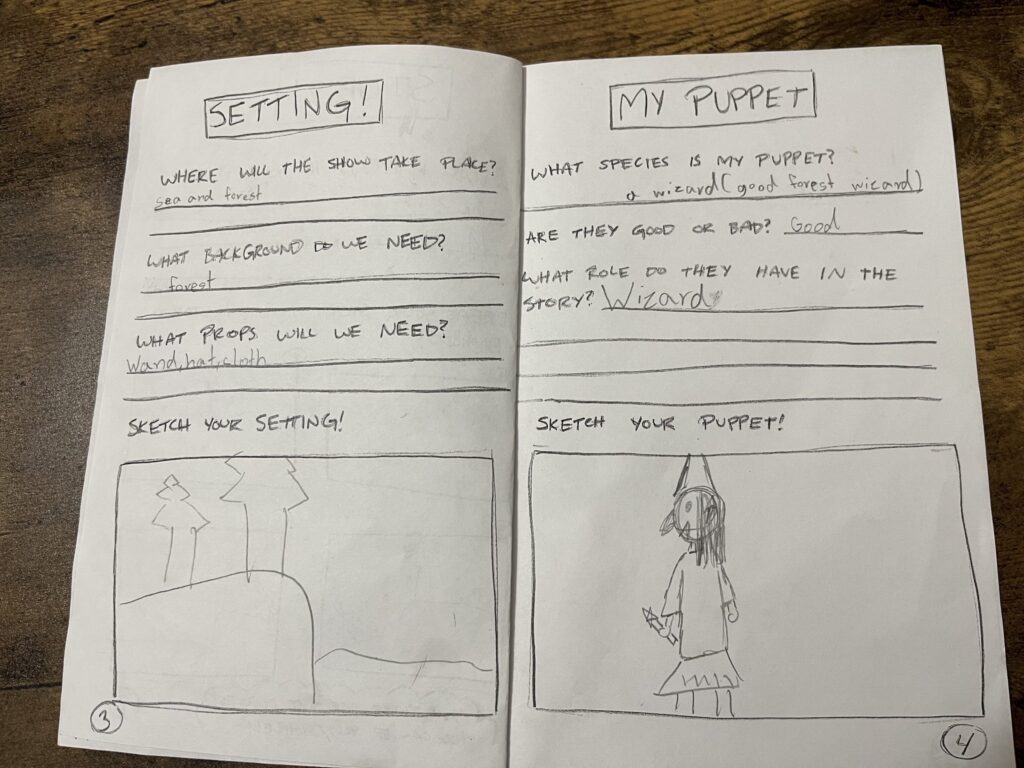 SETTING!
WHERE WILL THE SHOW TAKE PLACE?
sea and forest
WHAT BACKGROUND DO WE NEED?
forest
WHAT PROPS WILL WE NEED?
Wand, hat, cloth
SKETCH YOUR SETTING!
3
MY PUPPET
WHAT SPECIES IS MY PUPPET?
a wizard (good forest wizard)
ARE THEY GOOD OR BAD? Good
WHAT ROLE DO THEY HAVE IN THE
STORY? Wizard
SKETCH YOUR PUPPET!
4